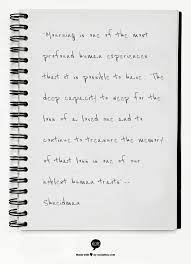 "Mourning is one of the most
profound human experiences
that it is possible to have. The
deep capacity to weep for the
loss of a loved one and to
continue to treasure the memory
of that loss is one of our
noblest human traits" --
Shneidman